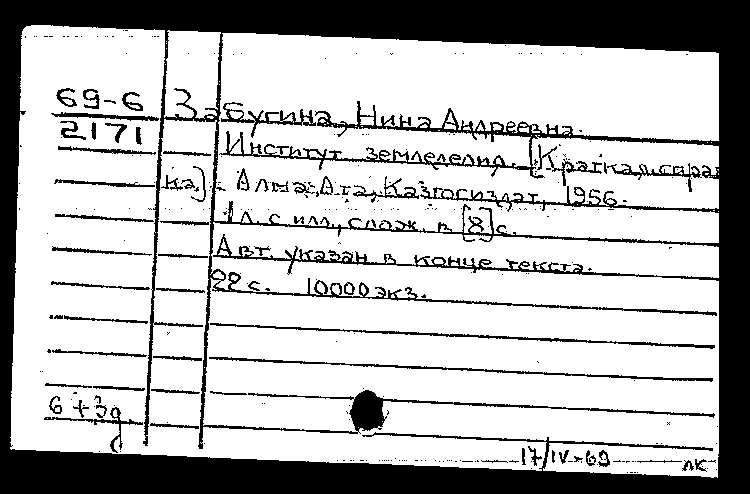 69-6
2171
Забугина, Нина Андреевна.
Институт земледелия. [Краткая справ
ка]. Алма-Ата, Казгосиздат, 1956.
1 л. с илл., слож. в [8] с.
Авт. указан в конце текста.
22 с. 10000 экз.
6+3д
17/IV-69 лк